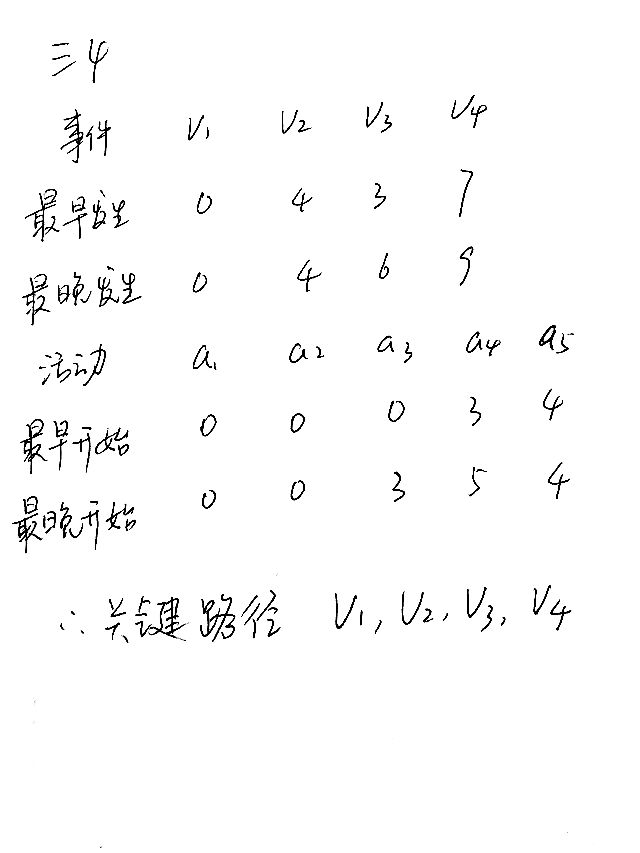 三4
事件 V1 V2 V3 V4
最早发生 0 4 3 7
最晚发生 0 4 6 9
活动 a1 a2 a3 a4 a5
最早开始 0 0 0 3 4
最晚开始 0 0 3 5 4
∴关键路径 V1, V2, V3, V4